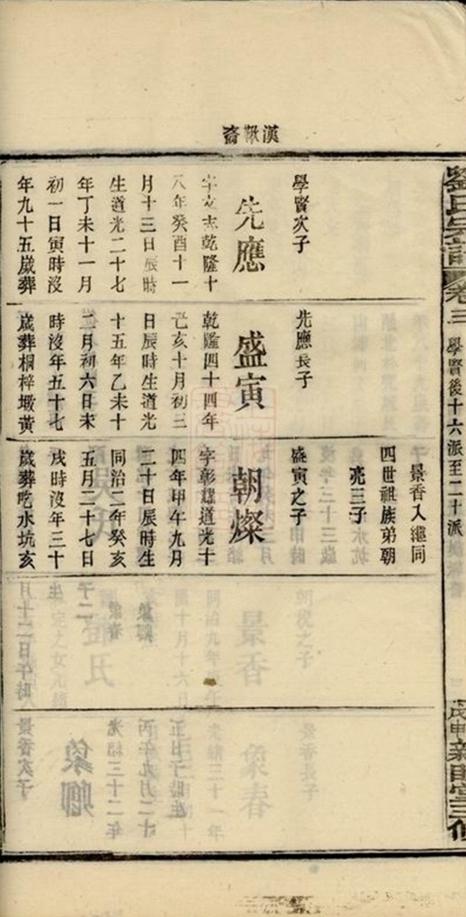 漢derived齋
劉氏宗譜
卷三
學賢後十六派至二十派
戊申新鐫堂三修
學賢次子
先應
字文志乾隆十
八年癸酉十一
月十三日辰時
生道光二十七
年丁未十一月
初一日寅時沒
年九十五歲葬
先應長子
盛寅
乾隆四十四年
己亥十月初三
日辰時生道光
十五年乙未十
二月初六日未
時沒年五十七
歲葬桐梓墩黃
景香入繼同
四世祖族弟朝
亮三子
盛寅之子
朝燦
字彰雄道光十
四年甲午九月
二十日辰時生
同治二年癸亥
五月二十七日
戌時沒年三十
歲葬吃水坑亥